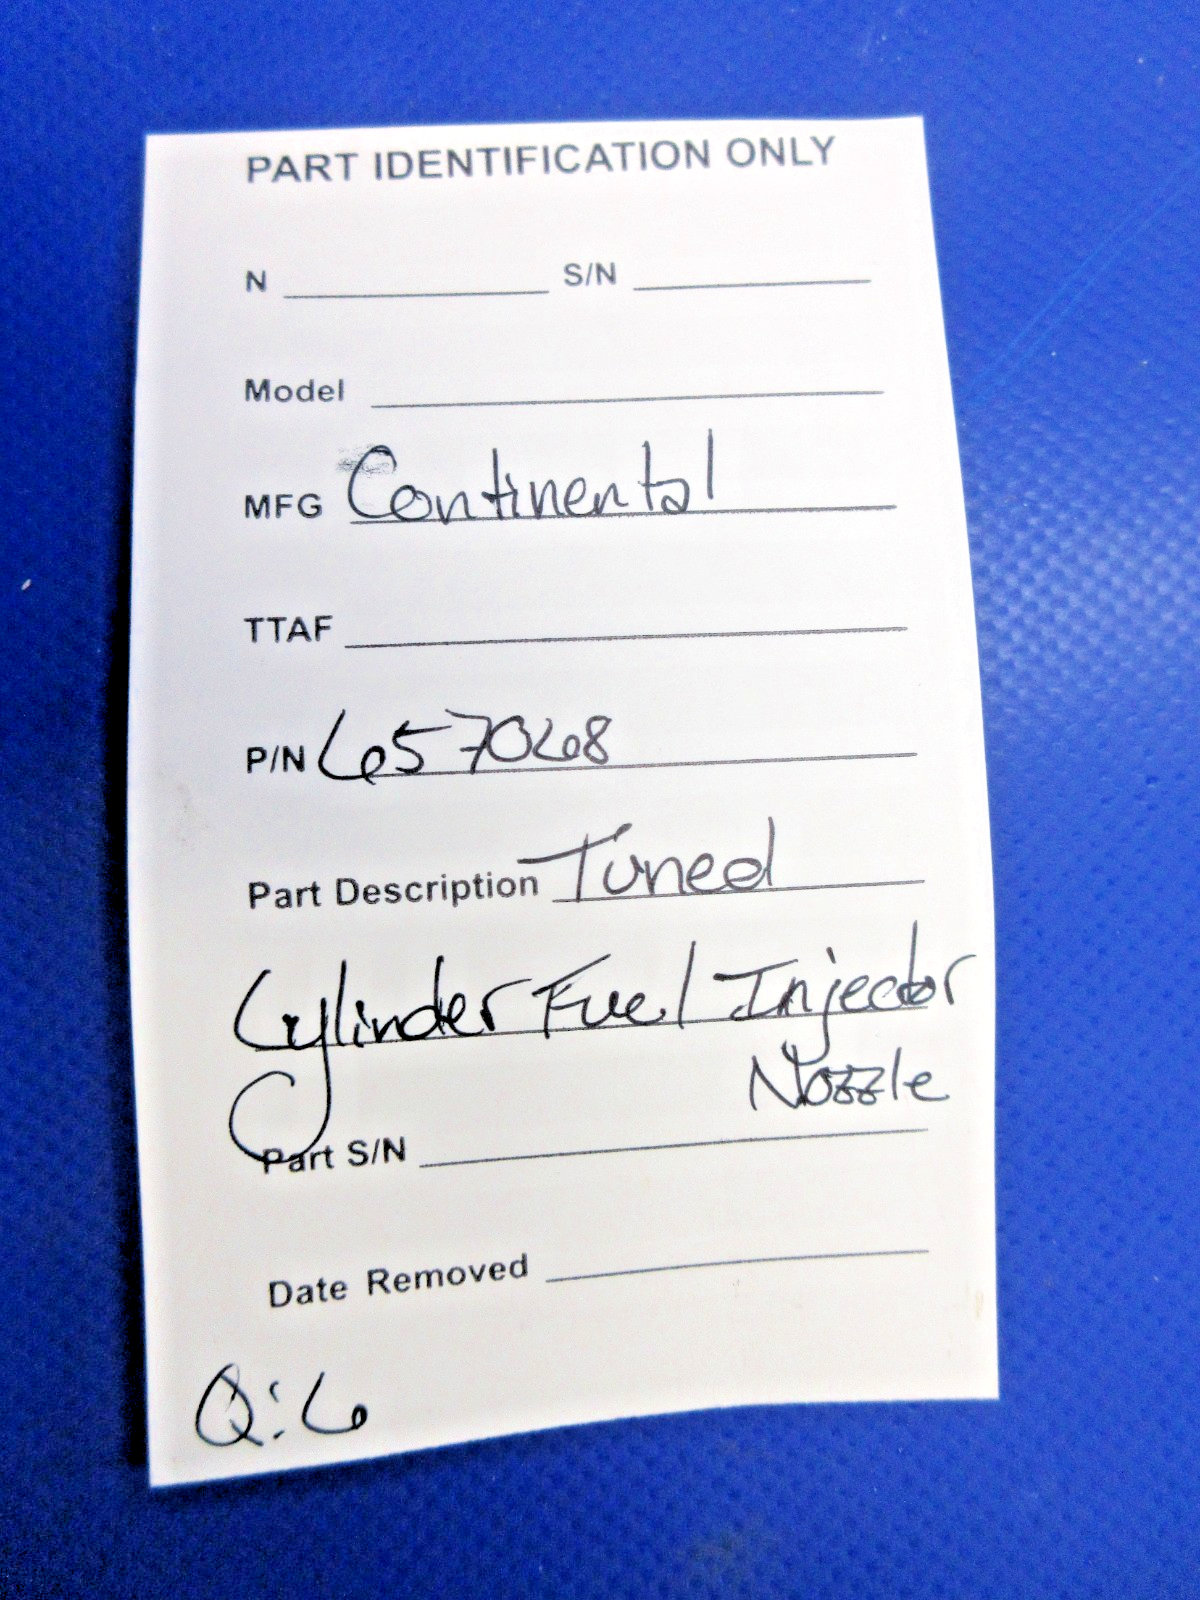 PART IDENTIFICATION ONLY
N S/N
Model
MFG Continental
TTAF
P/N 657068
Part Description Tuned
Cylinder Fuel Injector
Nozzle
Part S/N
Date Removed
Q:6